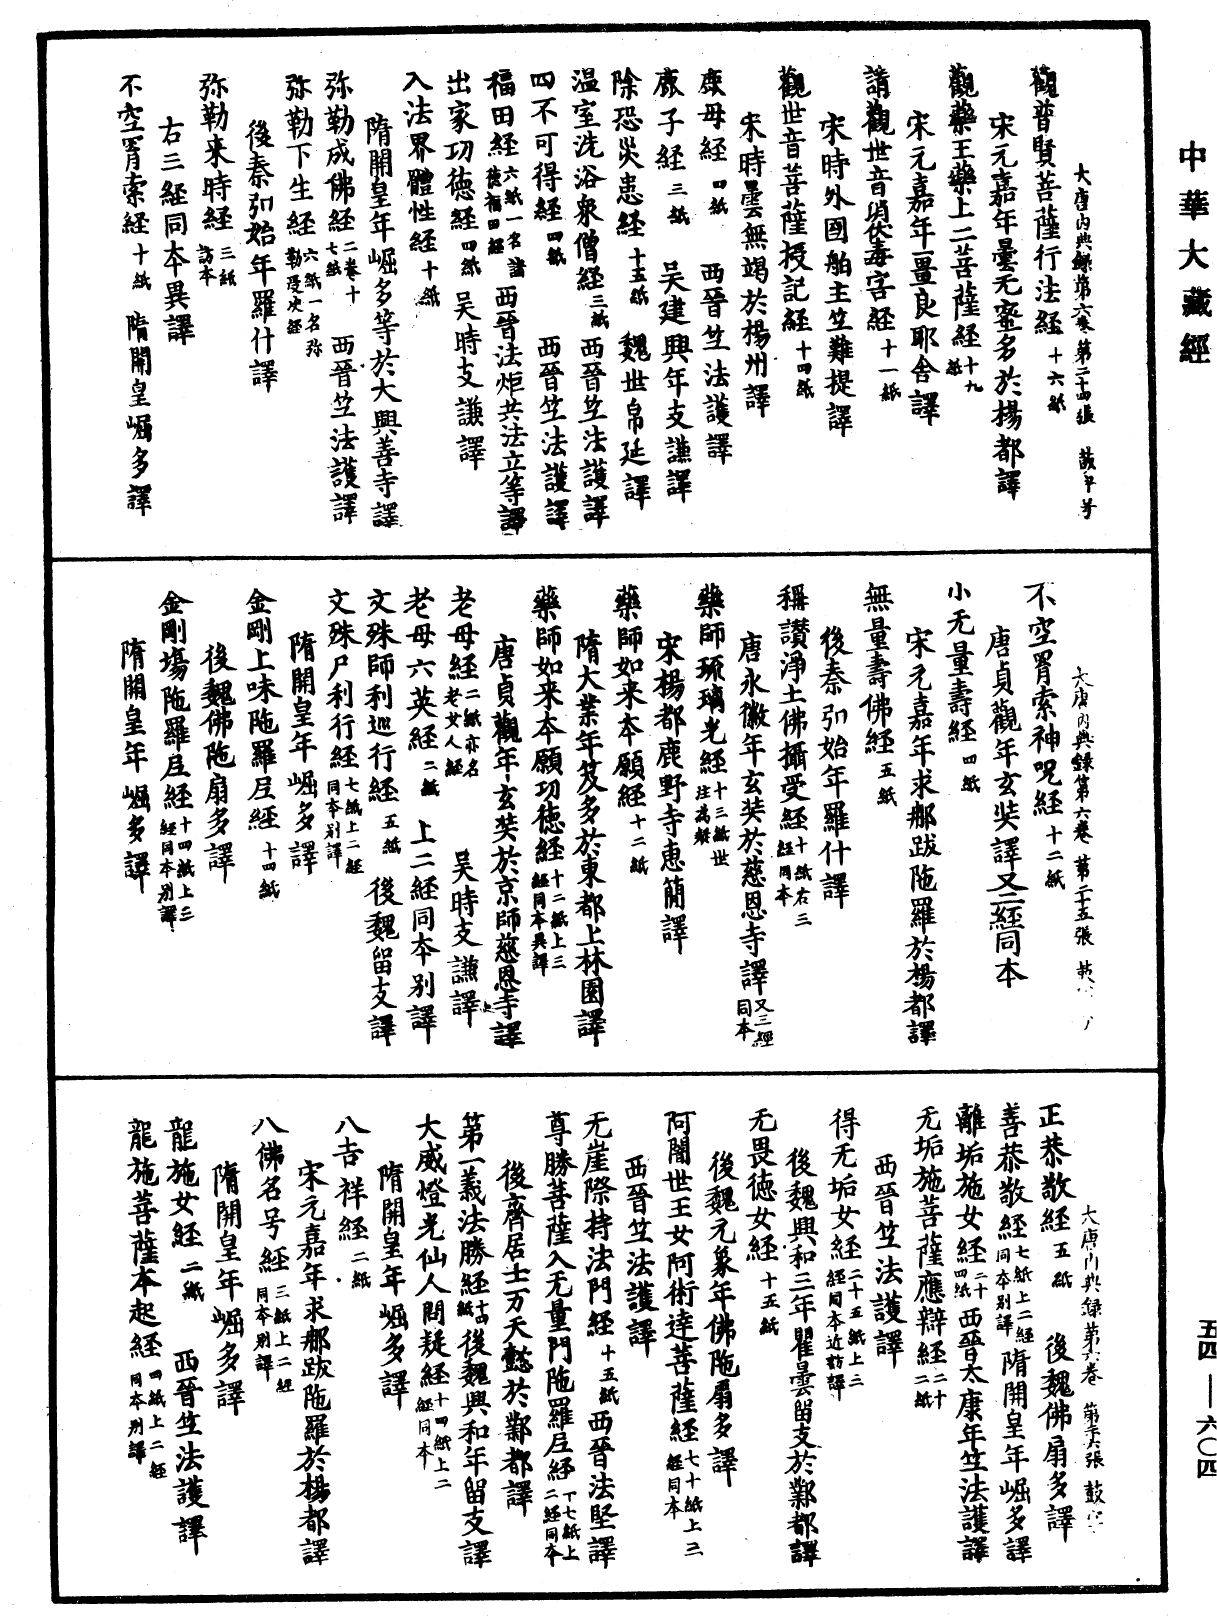 中華大藏經
大唐內典錄第六卷 第二十四張 鼓字号
觀普賢菩薩行法經十六紙
宋元嘉年曇无蜜多於楊都譯
觀藥王藥上二菩薩經十九紙
宋元嘉年畺良耶舍譯
請觀世音消伏毒害經十一紙
宋時外國舶主竺難提譯
觀世音菩薩授記經十四紙
宋時曇無竭於楊州譯
鹿母經四紙 西晉竺法護譯
鹿子經三紙 吴建興年支謙譯
除恐災患經十五紙 魏世帛延譯
温室洗浴衆僧經三紙 西晉竺法護譯
四不可得經四紙 西晉竺法護譯
福田經六紙一名諸德福田經 西晉法炬共法立等譯
出家功德經四紙 吴時支謙譯
入法界體性經十紙
隋開皇年崛多等於大興善寺譯
弥勒成佛經二卷十七紙 西晉竺法護譯
弥勒下生經六紙一名弥勒受决經
後秦弘始年羅什譯
弥勒来時經三紙訪本
右三經同本異譯
不空罥索經十紙 隋開皇崛多譯
大唐内典錄第六卷 第二十五張
不空罥索神呪經十二紙
唐貞觀年玄奘譯又二經同本
小无量壽經四紙
宋元嘉年求郍跋陁羅於楊都譯
無量壽佛經五紙
後秦弘始年羅什譯
稱讃淨土佛攝受經十紙右三經同本
唐永徽年玄奘於慈恩寺譯又三經同本
藥師琉璃光經十三紙世注為疑
宋楊都鹿野寺惠簡譯
藥師如来本願經十二紙
隋大業年笈多於東都上林園譯
藥師如来本願功德經十二紙上三經同本異譯
唐貞觀年玄奘於京師慈恩寺譯
老母經二紙亦名老女人經 吴時支謙譯
老母六英經二紙 上二經同本别譯
文殊師利巡行經五紙 後魏留支譯
文殊尸利行經七紙上二經同本别譯
隋開皇年崛多譯
金剛上味陁羅尼經十四紙
後魏佛陁扇多譯
金剛塲陁羅尼經十四紙上三經同本别譯
隋開皇年崛多譯
大唐内典録第六卷 第二十六張 鼓字
正恭敬經五紙 後魏佛扇多譯
善恭敬經七紙上二經同本别譯 隋開皇年崛多譯
離垢施女經二十四紙 西晉太康年竺法護譯
无垢施菩薩應辯經二十二紙
西晉竺法護譯
得无垢女經二十五紙上三經同本近訪譯
後魏興和三年瞿曇留支於鄴都譯
无畏德女經十五紙
後魏元象年佛陁扇多譯
阿闍世王女阿術達菩薩經七十紙上二經同本
西晉竺法護譯
无崖際持法門經十五紙 西晉法堅譯
尊勝菩薩入无量門陁羅尼經丁七紙上二經同本
後齊居士万天懿於鄴都譯
第一義法勝經十四紙 後魏興和年留支譯
大威燈光仙人問疑經十四紙上二經同本
隋開皇年崛多譯
八吉祥經二紙
宋元嘉年求郍跋陁羅於楊都譯
八佛名号經三紙上二經同本别譯
隋開皇年崛多譯
龍施女經二紙 西晉竺法護譯
龍施菩薩本起經四紙上二經同本别譯
五四—六〇四